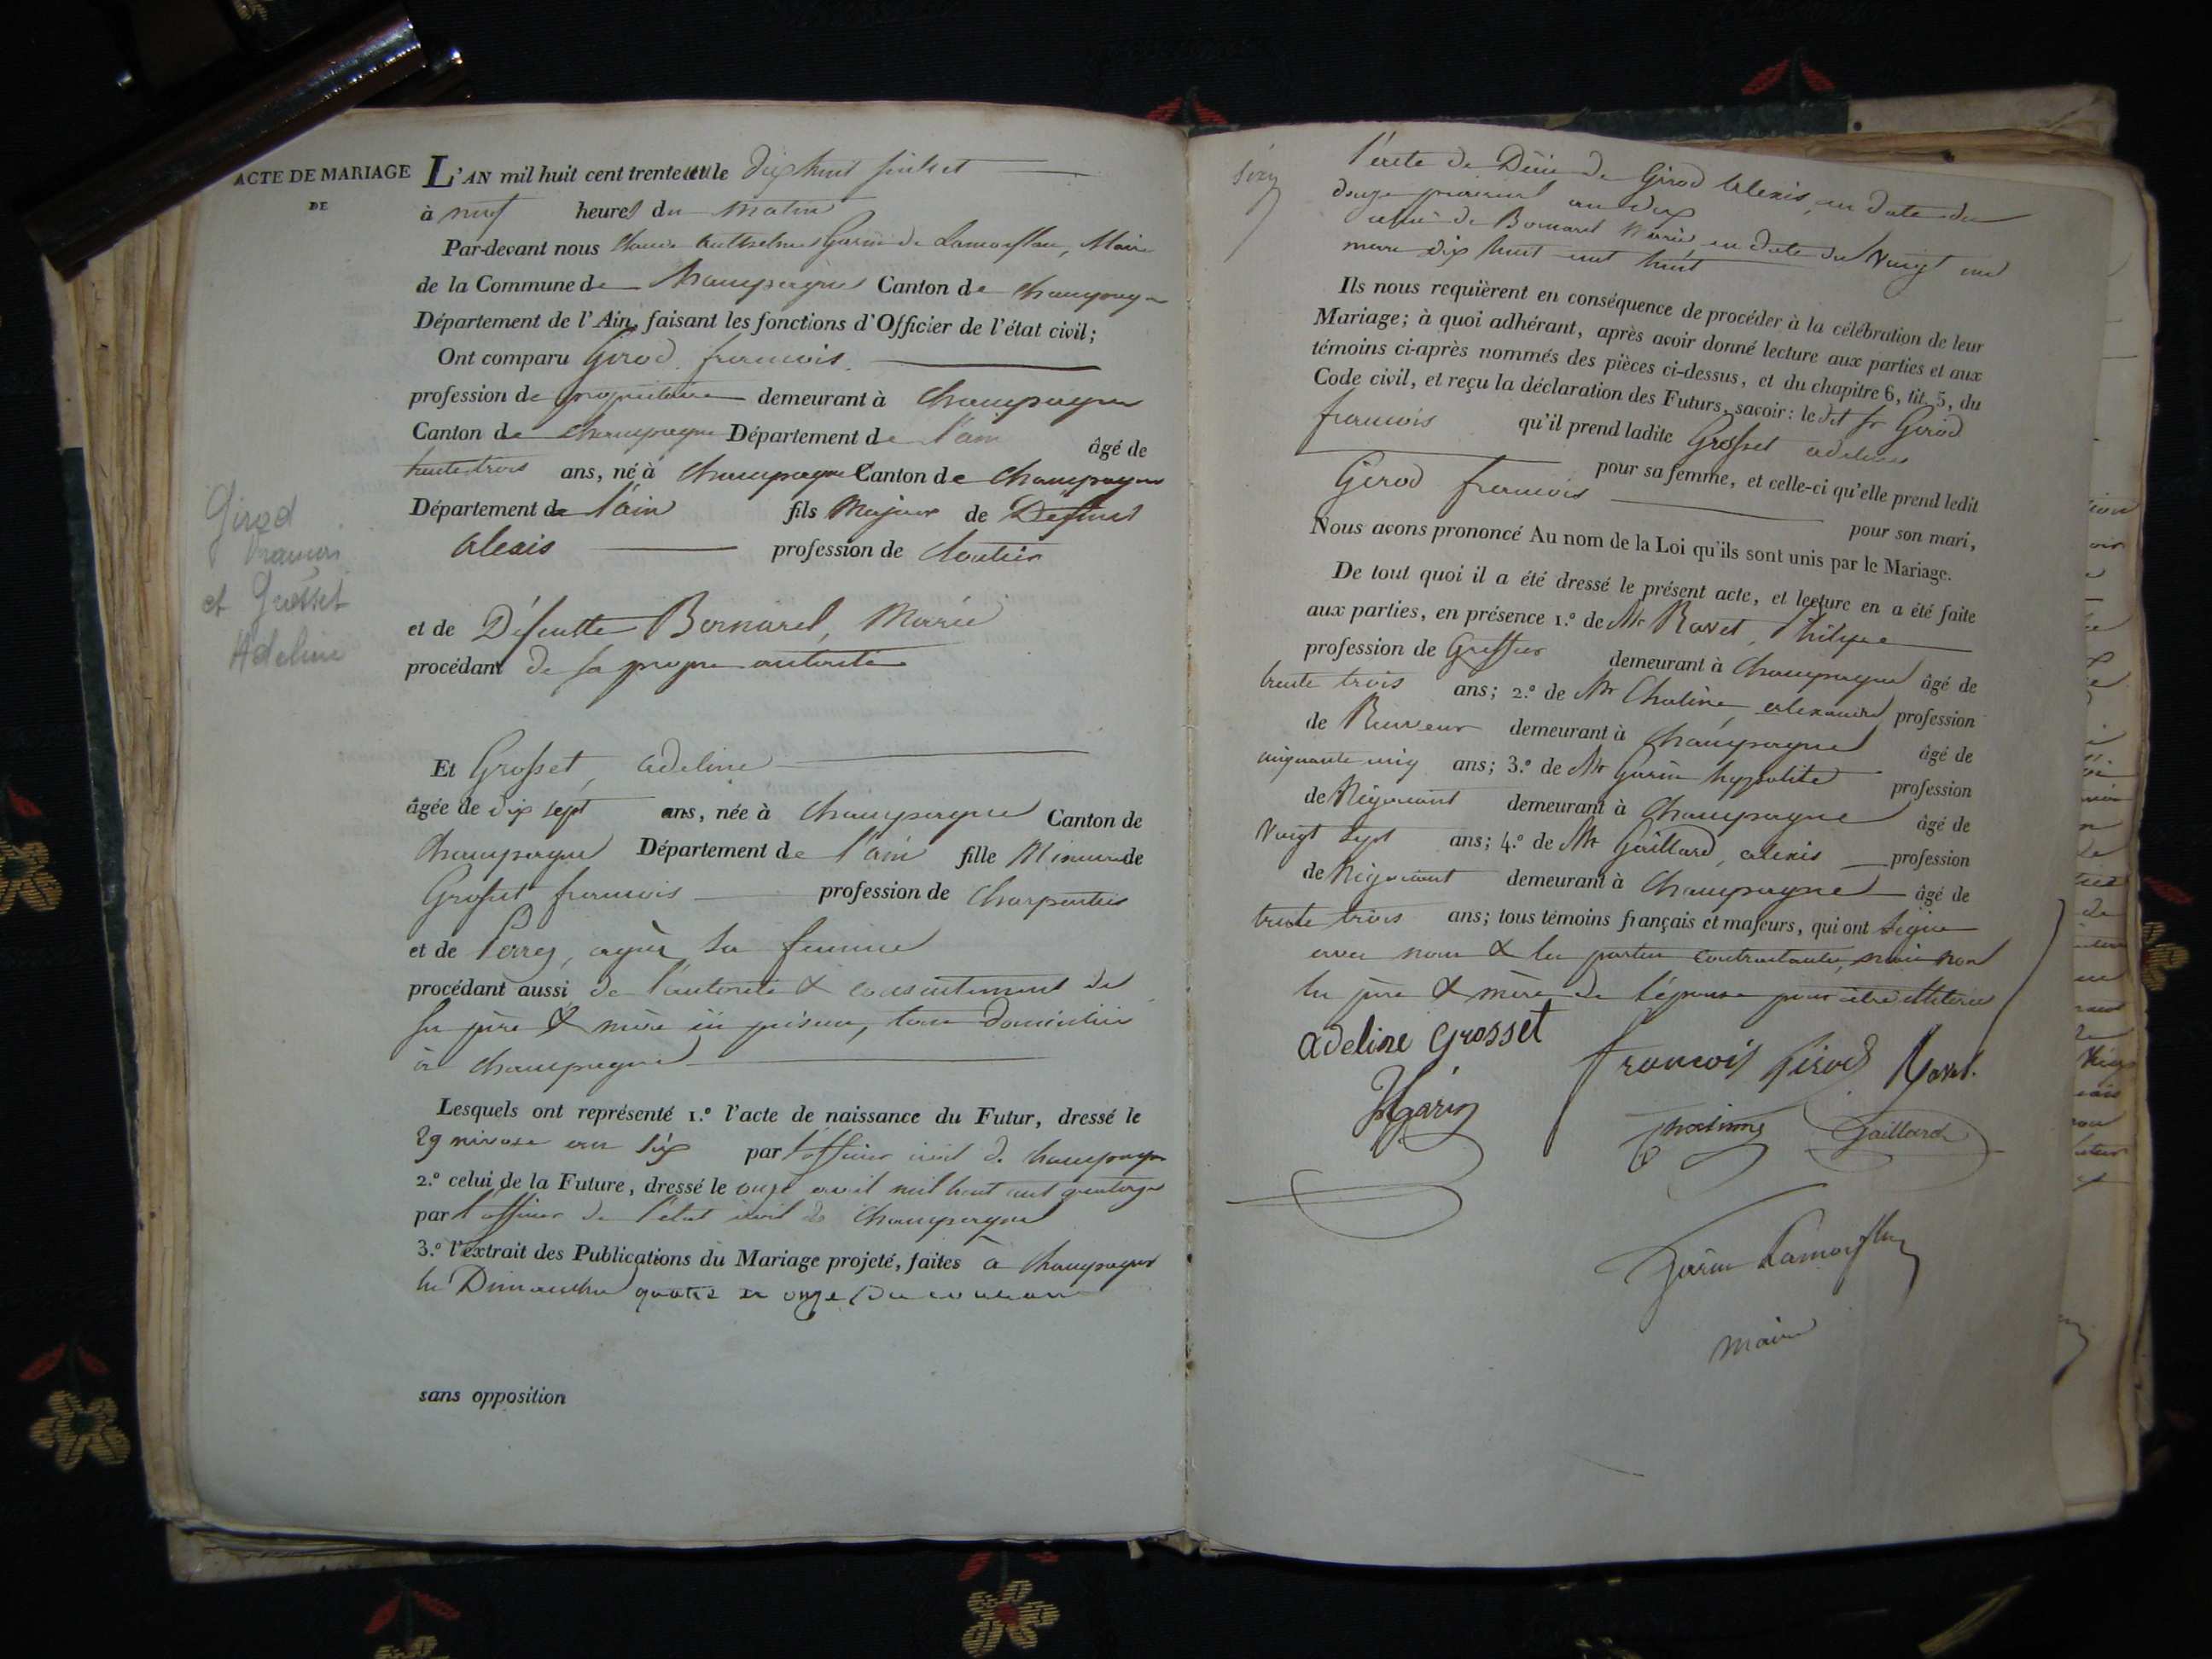 ACTE DE MARIAGE
DE
Girod
francois
et Grosset
Adeline
L'AN mil huit cent trente et un le dix huit juillet
à neuf heures du matin
Par-devant nous Claude Anthelme Garin de Lamorflan, Maire
de la Commune de Champagne Canton de Champagne
Département de l'Ain, faisant les fonctions d'Officier de l'état civil;
Ont comparu Girod francois
profession de propriétaire demeurant à Champagne
Canton de Champagne Département de l'ain âgé de
trente trois ans, né à Champagne Canton de Champagne
Département de l'ain fils Majeur de Defunt
alexis profession de Cloutier
et de Défunte Bornarel, Marie
procédant de sa propre autorité
Et Grosset, adeline
âgée de dix sept ans, née à Champagne Canton de
Champagne Département de l'ain fille Mineure de
Grosset francois profession de Charpentier
et de Perret, sa femme
procédant aussi de l'autorité & consentement de
ses père & mère ici présens, tous domiciliés
à Champagne
Lesquels ont représenté 1.º l'acte de naissance du Futur, dressé le
29 nivose an six par l'officier civil de Champagne
2.º celui de la Future, dressé le onze avril mil huit cent quatorze
par l'officier de l'état civil de Champagne
3.º l'extrait des Publications du Mariage projeté, faites à Champagne
les Dimanches quatre et onze du courant
sans opposition
l'acte de Décès de Girod Alexis, en date du
douze prairial an dix
celui de Bornarel Marie, en date du Vingt un
mars dix huit cent huit
Ils nous requièrent en conséquence de procéder à la célébration de leur
Mariage; à quoi adhérant, après avoir donné lecture aux parties et aux
témoins ci-après nommés des pièces ci-dessus, et du chapitre 6, tit. 5, du
Code civil, et reçu la déclaration des Futurs, savoir: le dit sr Girod
francois qu'il prend ladite Grosset adeline
pour sa femme, et celle-ci qu'elle prend ledit
Girod francois pour son mari,
Nous avons prononcé Au nom de la Loi qu'ils sont unis par le Mariage.
De tout quoi il a été dressé le présent acte, et lecture en a été faite
aux parties, en présence 1.º de Mr Ravet, Philipe
profession de Greffier demeurant à Champagne âgé de
trente trois ans; 2.º de Mr Chaline, alexandre, profession
de Receveur demeurant à Champagne âgé de
cinquante cinq ans; 3.º de Mr Garin hyppolite profession
de Négociant demeurant à Champagne âgé de
Vingt sept ans; 4.º de Mr Gaillard, alexis profession
de Négociant demeurant à Champagne âgé de
trente trois ans; tous témoins français et majeurs, qui ont signé
avec nous & les parties contractantes, mais non
les père & mère de l'épouse pour être illitérés
adeline Grosset
francois Girod Ravet
HGarin
Chaline
Gaillard
Garin Lamorflan
maire